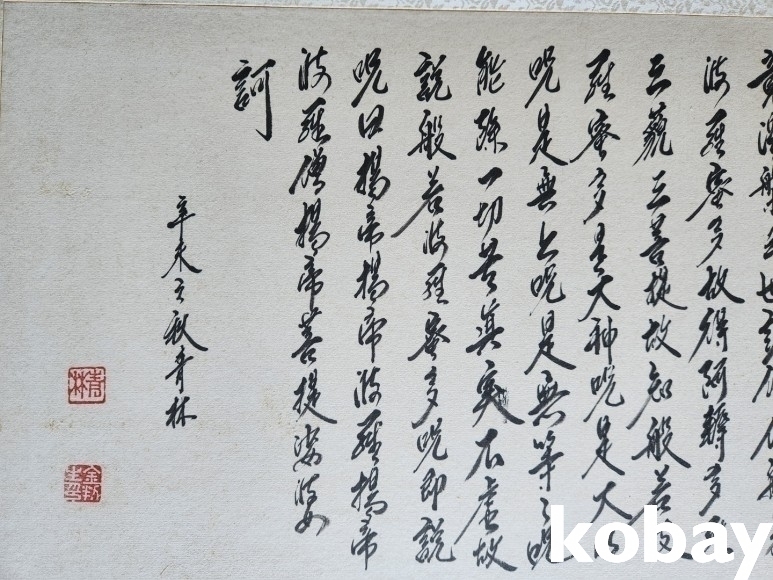 竟涅槃三世諸佛依般
波羅蜜多故得阿耨多羅
三藐三菩提故知般若波
羅蜜多是大神呪是大明
呪是無上呪是無等〻呪
能除一切苦眞實不虛故
說般若波羅蜜多呪即說
呪曰揭帝揭帝波羅揭帝
波羅僧揭帝菩提娑婆
訶
辛未之秋青林
青林
kobay